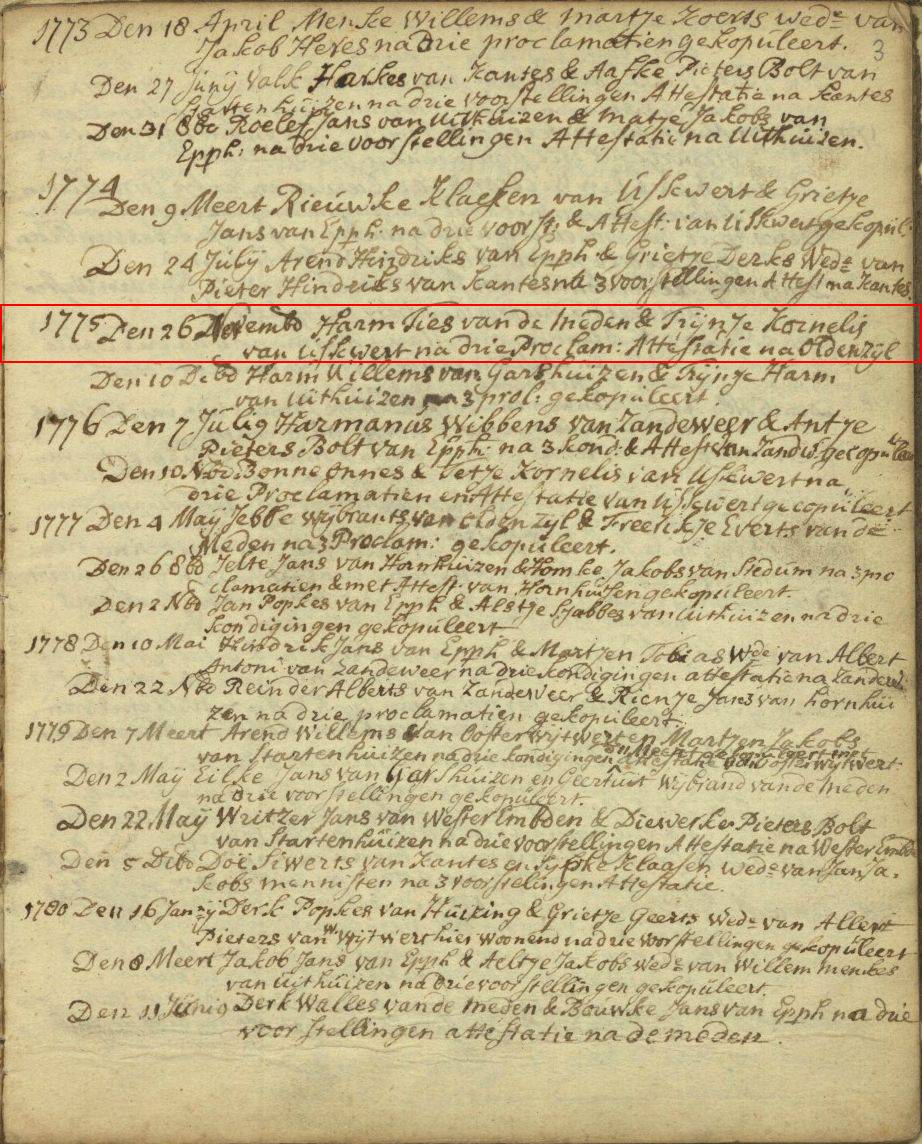 1773 Den 18 April Menke Willems & Martje Koerts wede van
3
Jakob Heres na drie proclamatien gekopuleert.
Den 27 Junij Valk Harkes van Kantes & Aafke Pieters Bolt van
Startenhuizen na drie voorstellingen Attestatie na Kantes
Den 31 8br Roelef Jans van Uithuizen & Matje Jakobs van
Epph: na drie voorstellingen Attestatie na Uithuizen.
1774
Den 9 Meert Rieuwke Klaesen van Uskwert & Grietje
Jans van Epph: na drie voorst: & Attest: van Uskwert gekopul:
Den 24 July Arend Hindriks van Epph & Grietje Derks Wede van
Pieter Hindriks van Kantes na 3 voorstellingen Attest na Kantes.
1775 Den 26 Novembr Harm Ties van de Meden & Trijntje Kornelis
van Uskwert na drie Proclam: Attestatie na Oldenzyl
Den 10 Decbr Harm Willems van Garshuizen & Trijntje Harm
van Uithuizen na 3 prol: gekopuleert.
1776 Den 7 Julig Harmanus Wibbens van Zandeweer & Antje
Pieters Bolt van Epph: na 3 kond: & Attest van Zandw: gecopuleert
Den 10 Nbr: Bonne Onnes & Vetje Kornelis van Uskwert na
drie Proclamatien en Attestatie van Uskwert gecopuleert
1777 Den 4 May Jebbe Wybrants van Oldenzyl & Freerkje Everts van de
Meden na 3 Proclam: gekopuleert.
Den 26 8br Jelte Jans van Hornhuizen & Homke Jakobs van Stedum na 3 pro
clamatien & met Attest: van Hornhuizen gekopuleert.
Den 2 Nbr Jan Popkes van Epph & Alstje Sjabbes van Uithuizen na drie
kondigingen gekopuleert
1778 Den 10 Mai Hindrik Jans van Epph & Martjen Tobias Wde van Albert
Antoni van Zandeweer na drie kondigingen attestatie na Zandew:
Den 22 Nbr Reinder Alberts van Zandeweer & Rientje Jans van hornhui
zen na drie proclamatien gekopuleert.
1779 Den 7 Meert Arend Willems van Oosterwijtwert en Martjen Jakobs
van Startenhuizen na drie kondigingen attestatie van oosterwijtwert
Den 2 May Eilke Jans van Garshuizen en Geertuit Wijbrand van de Meden
na drie voorstellingen gekopuleert.
Den 22 May Writzer Jans van Wester Embden & Diewerke Pieters Bolt
van Startenhuizen na drie voorstellingen Attestatie na Wester Embd
Den 5 Dibr Doe Siwerts van Kantes en Klaasen wede van Jan Ja-
kobs mennisten na 3 voorstelingen Attestatie.
1780 Den 16 Janrij Derk Popkes van Huizing & Grietje Geerts wede van Allert
Pieters van Wijtwert hier woonend na drie voorstellingen gekopuleert
Den 8 Meert Jakob Jans van Epph & Aeltje Jakobs wede van Willem Menkes
van Uithuizen na drie voorstellingen gekopuleert.
Den 11 Junig Derk Walles van de Meden & Bouwke Jans van Epph na drie
voorstellingen attestatie na de meden.